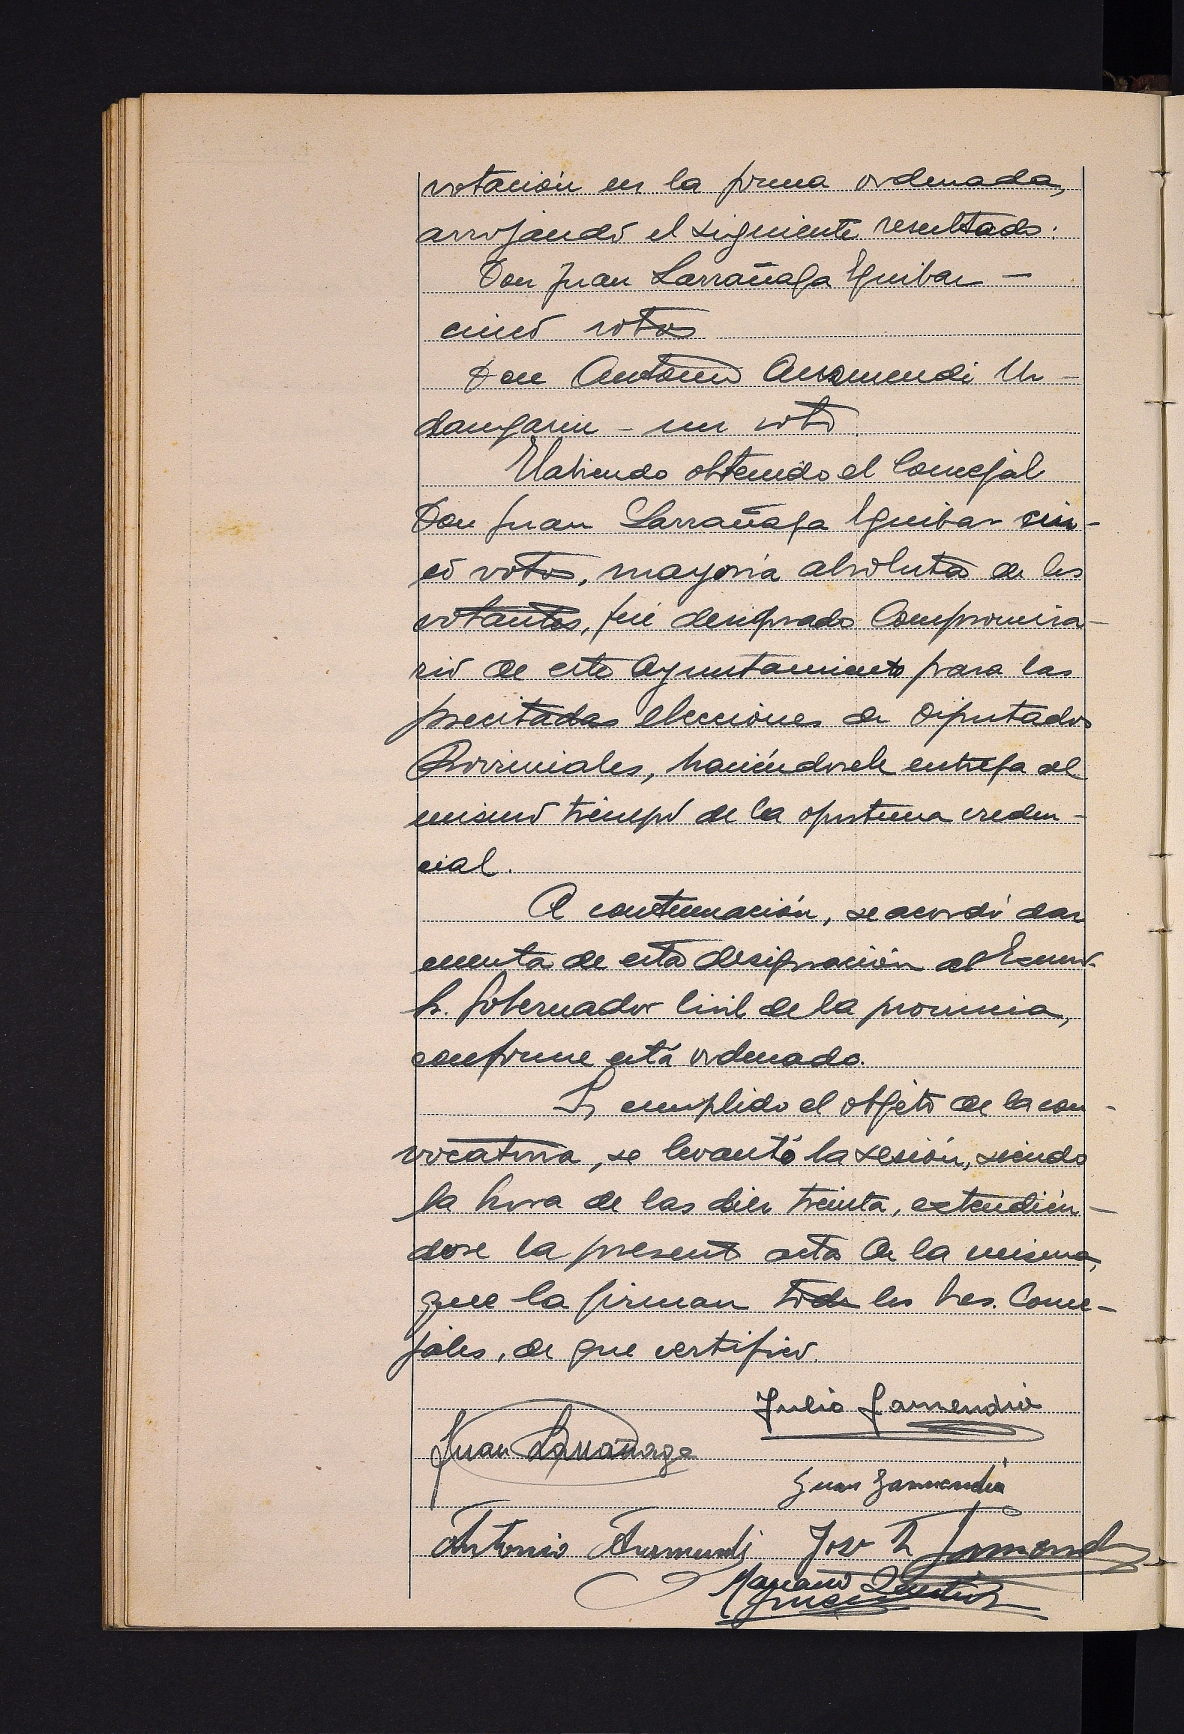 votación en la forma ordenada,
arrojando el siguiente resultado:
Don Juan Larrañaga Eguibar —
cinco votos
Don Antonio Aramendi Ur-
dangarin - un voto.
Habiendo obtenido el Concejal
Don Juan Larrañaga Eguibar cin-
co votos, mayoría absoluta de los
votantes, fué designado Compromisa-
rio de este Ayuntamiento para las
precitadas elecciones de Diputados
Provinciales, haciéndosele entrega al
mismo tiempo de la oportuna creden-
cial.
A continuación, se acordó dar
cuenta de esta designación al Excmo.
Sr. Gobernador Civil de la provincia,
conforme está ordenado.
Y, cumplido el objeto de la con-
vocatoria, se levantó la sesión, siendo
la hora de las diez treinta, extendién-
dose la present acta de la misma,
que la firman todos los Sres. Conce-
jales, de que certifico.
Julio Garmendia
Juan Larrañaga
Juan Garmendia
Antonio Aramendi José
Mariano